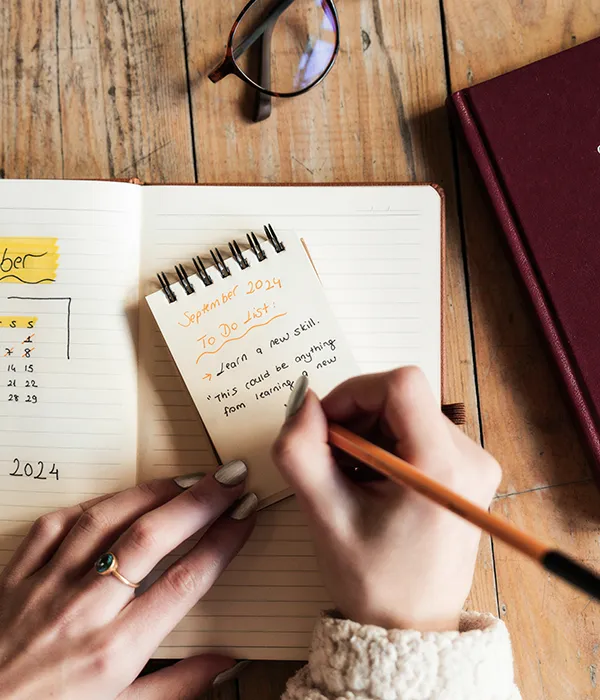 ber
S S
1
7 8
14 15
21 22
28 29
2024
September 2024
To Do List:
→ Learn a new skill.
"This could be anything
from learning a new